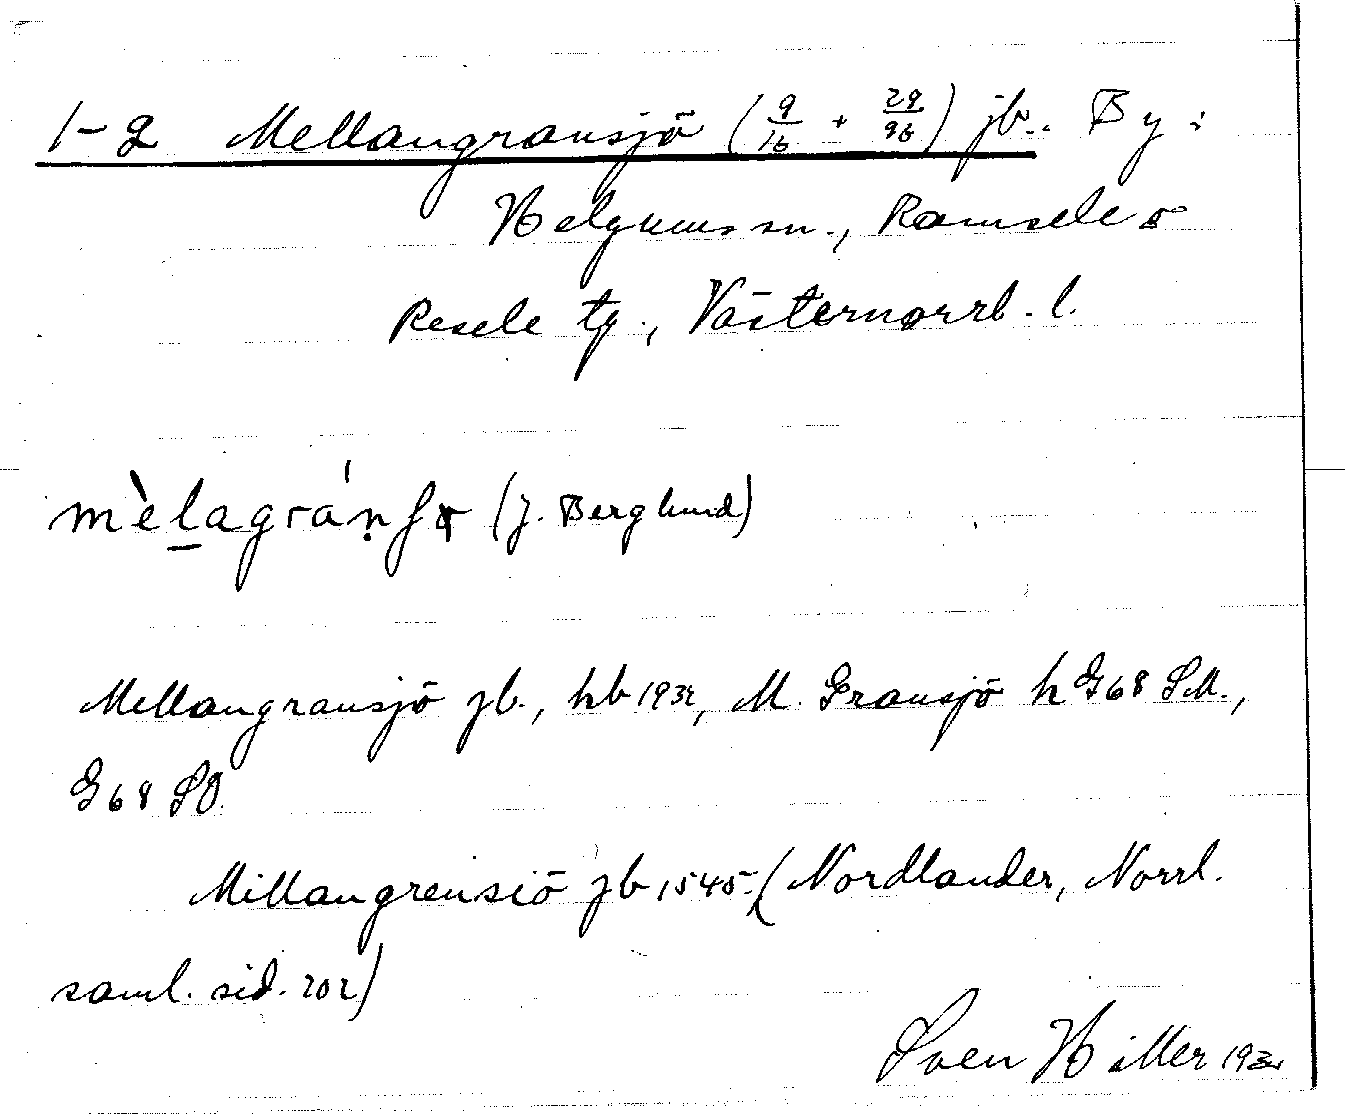 1-2 Mellangransjö (9/16 + 29/96) jb.. By i
Helgums sn., Ramsele o
Resele tg., Västernorrl. l.
(J. Berglund)
Mellangransjö jb., hb 1932, M. Gransjö h G68 SM.,
G68 SO.
Millangrensiö jb 1545. (Nordlander, Norrl.
saml. sid. 202)
Sven Hiller 1932